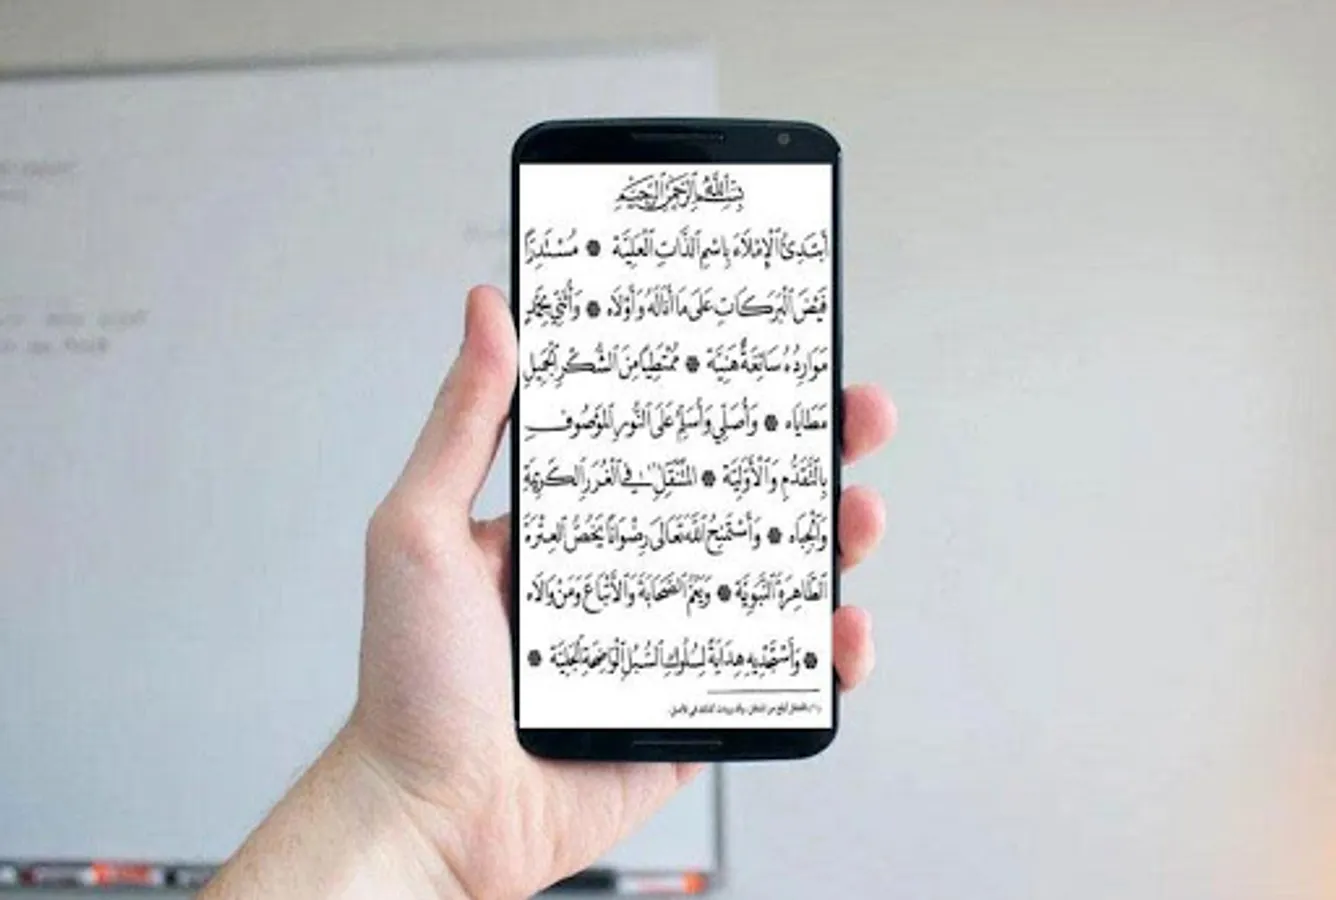 بِسْمِ ٱللَّهِ ٱلرَّحْمَٰنِ ٱلرَّحِيمِ
أَبْتَدِئُ ٱلْإِمْلَاءَ بِاسْمِ ٱلذَّاتِ ٱلْعَلِيَّةِ ۞ مُسْتَدِرًّا
فَيْضَ ٱلْبَرَكَاتِ عَلَى مَا أَنَالَهُ وَأَوْلَاه ۞ وَأُثَنِّي بِحَمْدٍ
مَوَارِدُهُ سَائِغَةٌ هَنِيَّة ۞ مُمْتَطِيًا مِنَ ٱلشُّكْرِ ٱلْجَمِيلِ
مَطَايَاه ۞ وَأُصَلِّي وَأُسَلِّمُ عَلَى ٱلنُّورِ ٱلْمَوْصُوفِ
بِالتَّقَدُّمِ وَٱلْأَوَّلِيَّة ۞ ٱلْمُتَنَقِّلِ فِي ٱلْغُرَرِ ٱلْكَرِيمَةِ
وَٱلْجِبَاه ۞ وَأَسْتَمْنِحُ ٱللَّهَ تَعَالَى رِضْوَانًا يَخُصُّ ٱلْعِتْرَةَ
ٱلطَّاهِرَةَ ٱلنَّبَوِيَّة ۞ وَيَعُمُّ ٱلصَّحَابَةَ وَٱلْأَتْبَاعَ وَمَنْ وَالَاه
۞ وَأَسْتَجْدِيهِ هِدَايَةً لِسُلُوكِ ٱلسُّبُلِ ٱلْوَاضِحَةِ ٱلْجَلِيَّة ۞